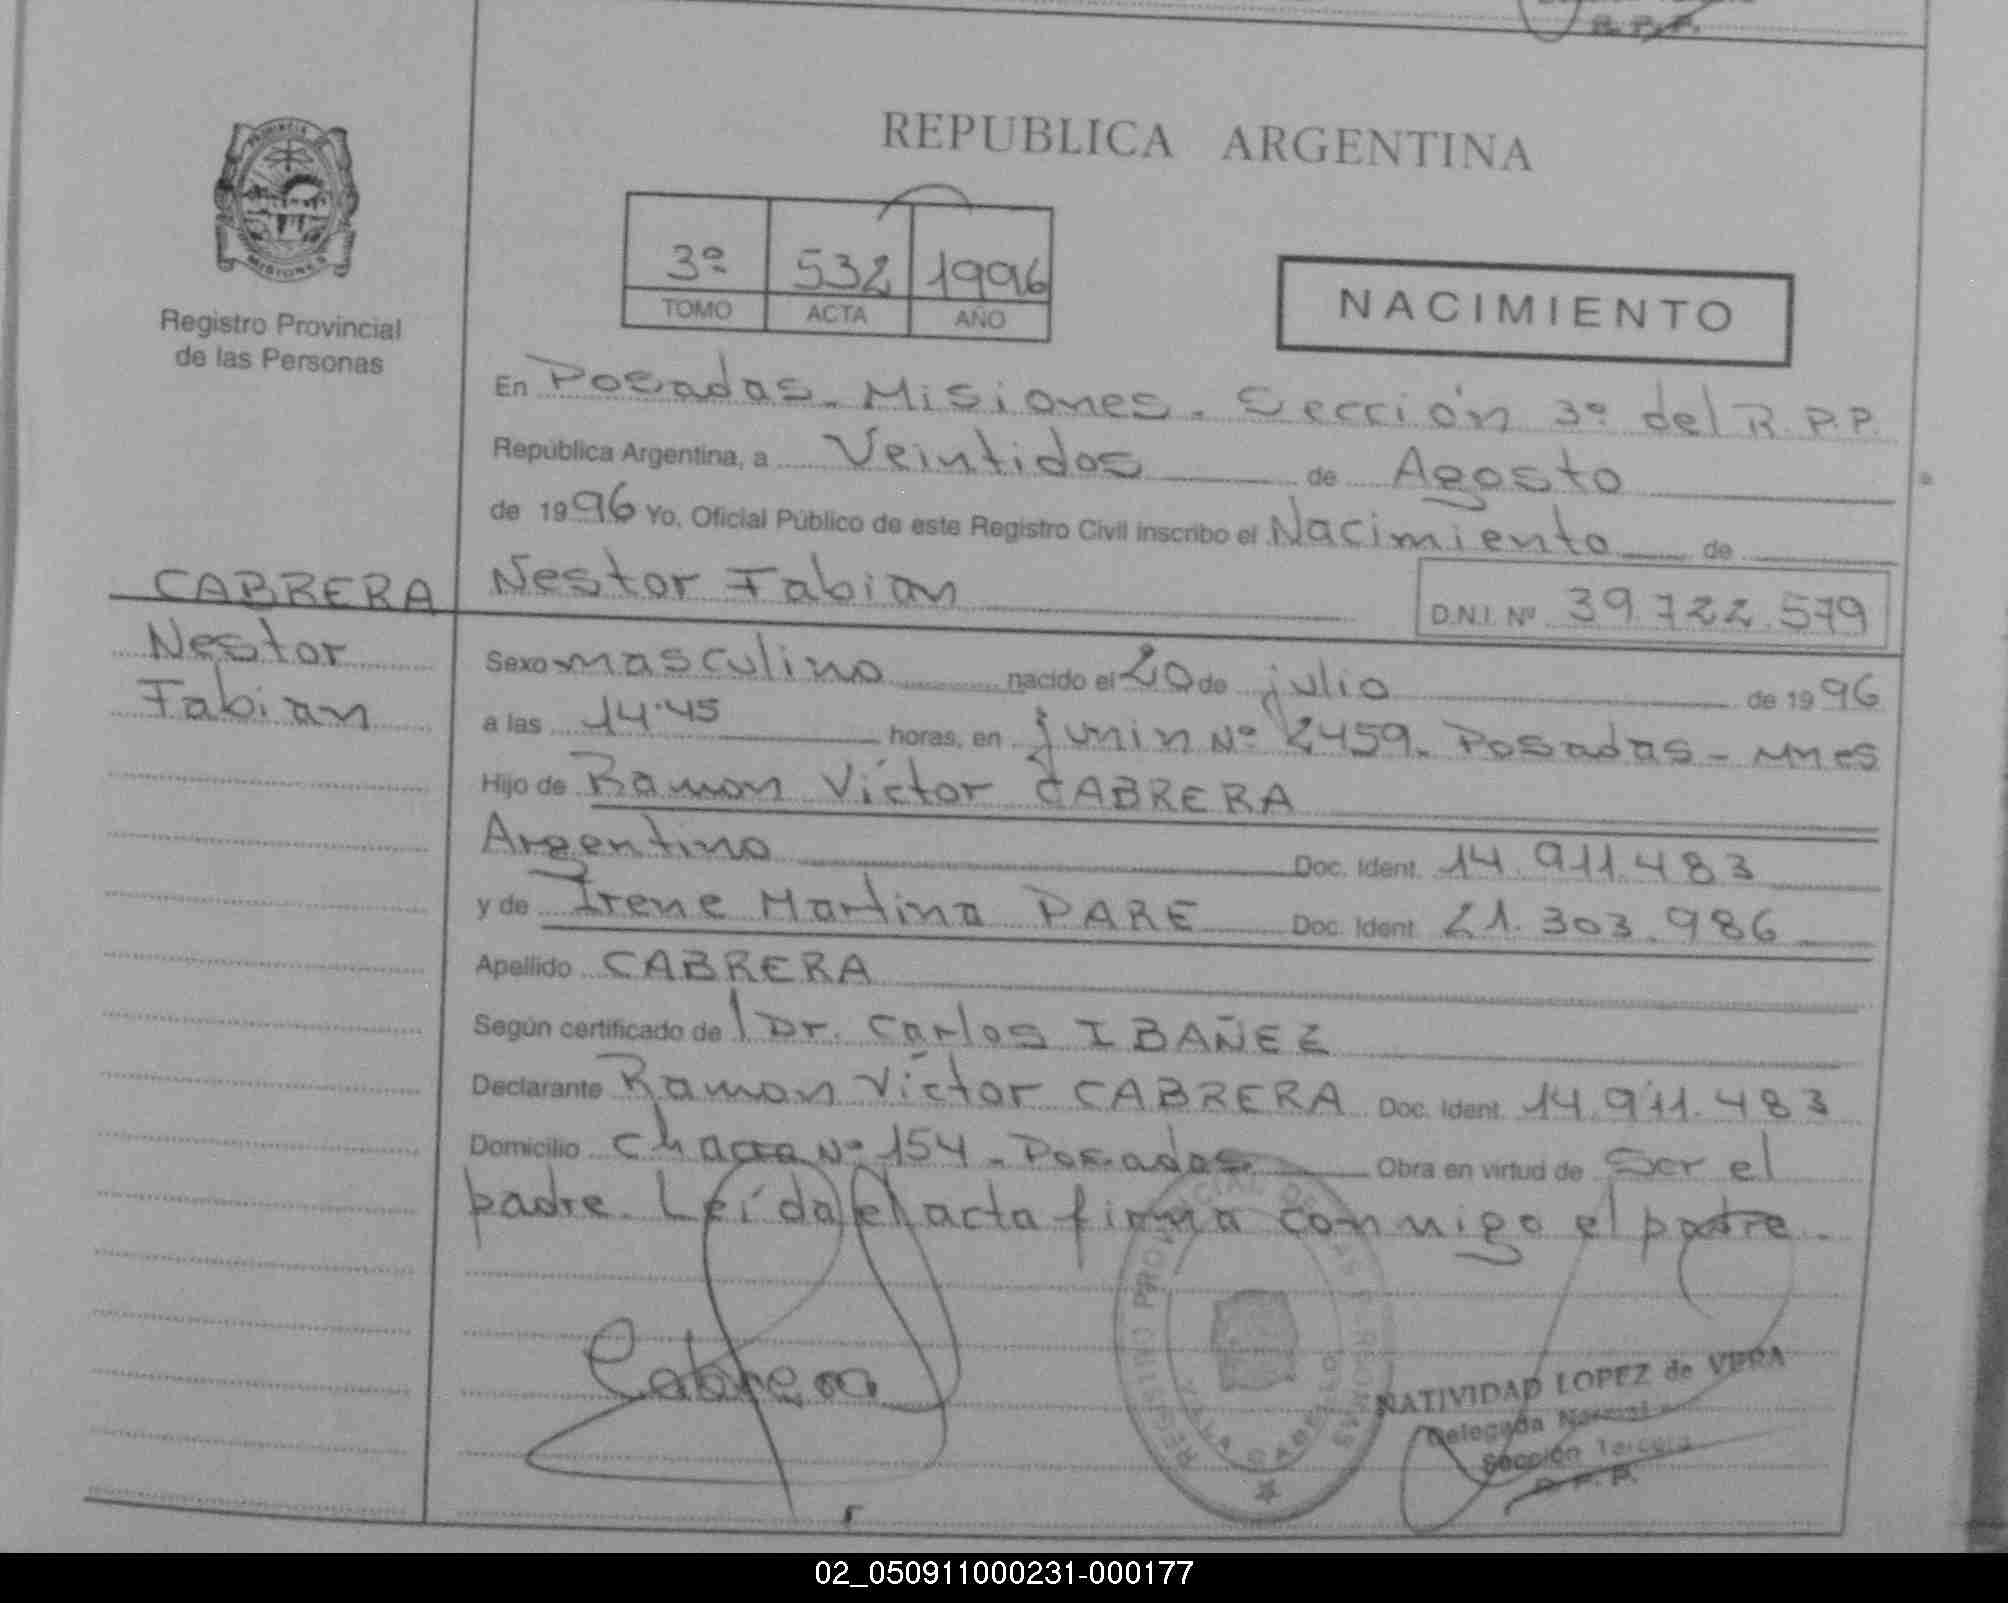 R. P. P.
REPUBLICA ARGENTINA
PROVINCIA
MISIONES
Registro Provincial
de las Personas
3º 532 1996
TOMO ACTA AÑO
NACIMIENTO
En Posadas - Misiones - Sección 3º del R.P.P.
República Argentina, a Veintidos de Agosto
de 1996 Yo, Oficial Público de este Registro Civil inscribo el Nacimiento de
CABRERA Nestor Fabian
D.N.I. Nº 39.722.579
Nestor
Fabian
Sexo masculino nacido el 20 de julio de 1996
a las 14.45 horas, en junin Nº 2459 - Posadas - Mnes
Hijo de Ramon Víctor CABRERA
Argentino Doc. Ident. 14.911.483
y de Irene Martina PARE Doc. Ident. 21.303.986
Apellido CABRERA
Según certificado de l Dr. Carlos IBAÑEZ
Declarante Ramon Víctor CABRERA Doc. Ident. 14.911.483
Domicilio chacra Nº 154 - Posadas Obra en virtud de ser el
padre. Leída el acta firma conmigo el padre.
Cabrera
REGISTRO PROVINCIAL DE LAS PERSONAS
NATIVIDAD LOPEZ de VERA
Delegada Normal
Sección Tercera
R. P. P.
02_050911000231-000177